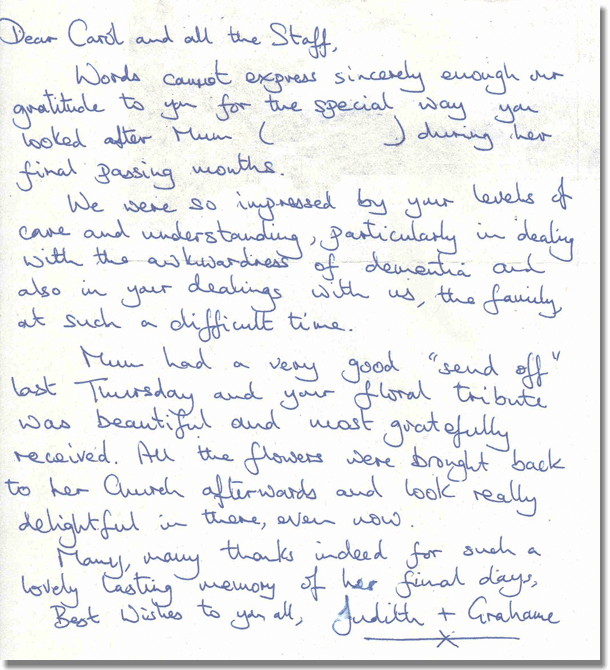 Dear Carol and all the Staff,
Words cannot express sincerely enough our
gratitude to you for the special way you
looked after Mum ( ) during her
final passing months.
We were so impressed by your levels of
care and understanding, particularly in dealing
with the awkwardness of dementia and
also in your dealings with us, the family,
at such a difficult time.
Mum had a very good "send off"
last Thursday and your floral tribute
was beautiful and most gratefully
received. All the flowers were brought back
to her Church afterwards and look really
delightful in there, even now.
Many, many thanks indeed for such a
lovely lasting memory of her final days,
Best Wishes to you all, Judith + Grahame
x